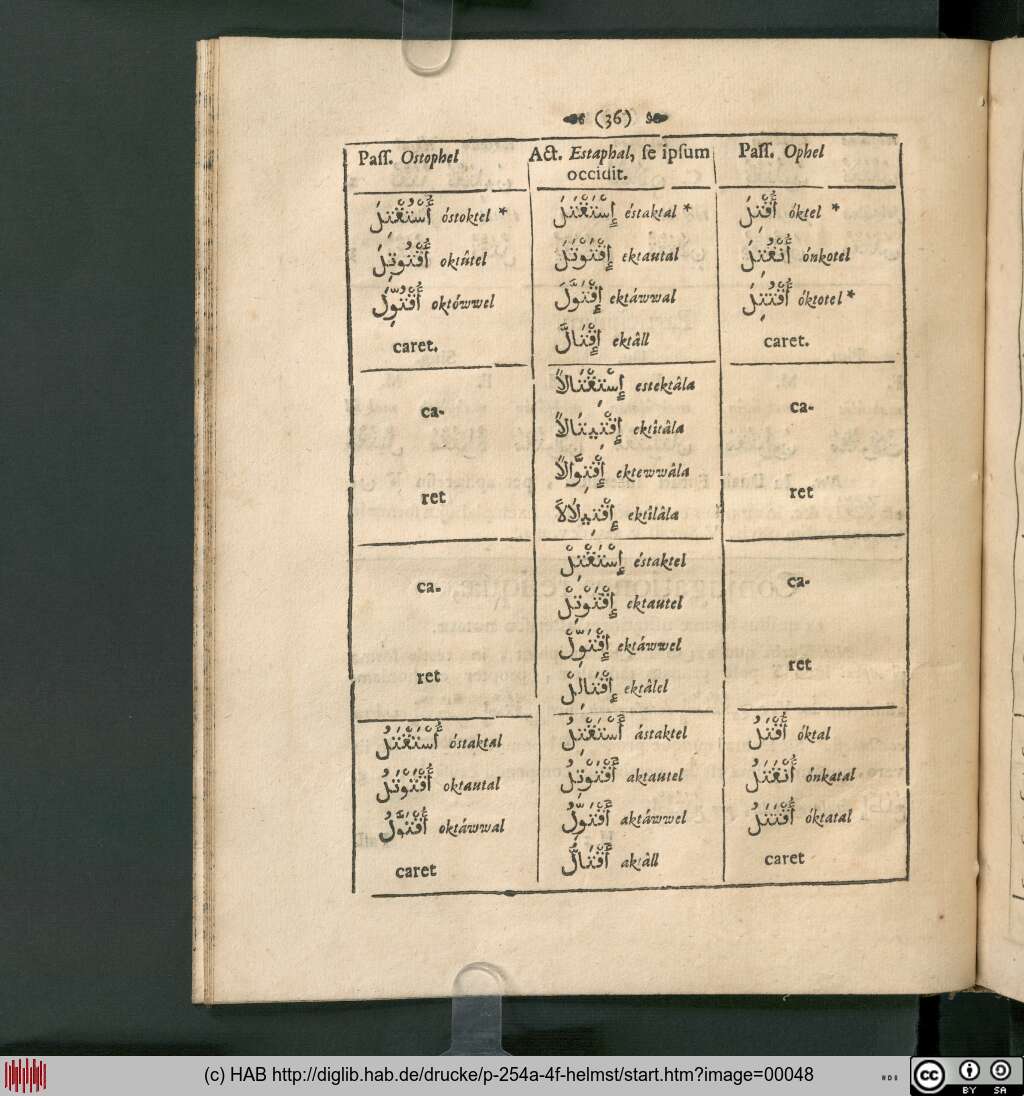 (36)
Paſſ. Ostophel
Act. Estaphal, ſe ipſum
occidit.
Paſſ. Ophel
أُسْتُقْتِلَ óstoktel *
إِسْتَقْتَلَ éstaktal *
أُقْتِلَ óktel *
أُقْتُوتِلَ oktûtel
إِقْتَوْتَلَ ektautal
أُنْقُتِلَ ónkotel
أُقْتُوِّلَ októwwel
إِقْتَوَّلَ ektáwwal
أُقْتُتِلَ óktotel *
caret.
إِقْتَالَّ ektâll
caret.
ca-
إِسْتِقْتَالًا estektâla
ca-
إِقْتِيتَالًا ektîtâla
ret
إِقْتِوَّالًا ektewwâla
ret
إِقْتِيلَالًا ektîlâla
ca-
إِسْتَقْتِلْ éstaktel
ca-
إِقْتَوْتِلْ ektautel
ret
إِقْتَوِّلْ ektáwwel
ret
إِقْتَالِلْ ektâlel
أُسْتَقْتَلُ óstaktal
أَسْتَقْتِلُ ástaktel
أُقْتَلُ óktal
أُقْتَوْتَلُ oktautal
أَقْتَوْتِلُ aktautel
أُنْقَتَلُ ónkatal
أُقْتَوَّلُ oktáwwal
أَقْتَوِّلُ aktáwwel
أُقْتَتَلُ óktatal
caret
أَقْتَالُّ aktâll
caret
(c) HAB http://diglib.hab.de/drucke/p-254a-4f-helmst/start.htm?image=00048
cc
BY SA